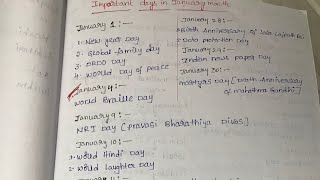 Important days in January month
January 1:-
1. New year Day
2. Global family day
3. ORDO Day
4. World Day of peace
January 4:-
World Braille Day
January 9:-
NRI Day [Pravasi Bharathiya Divas]
January 10:-
1. World Hindi Day
2. World laughter Day
January 28:-
Birth Anniversary of Lala Lajpat Rai
Data protection Day
January 29:-
Indian news paper Day
January 30:-
martyrs Day [Death Anniversary
of mahathma Gandhi]